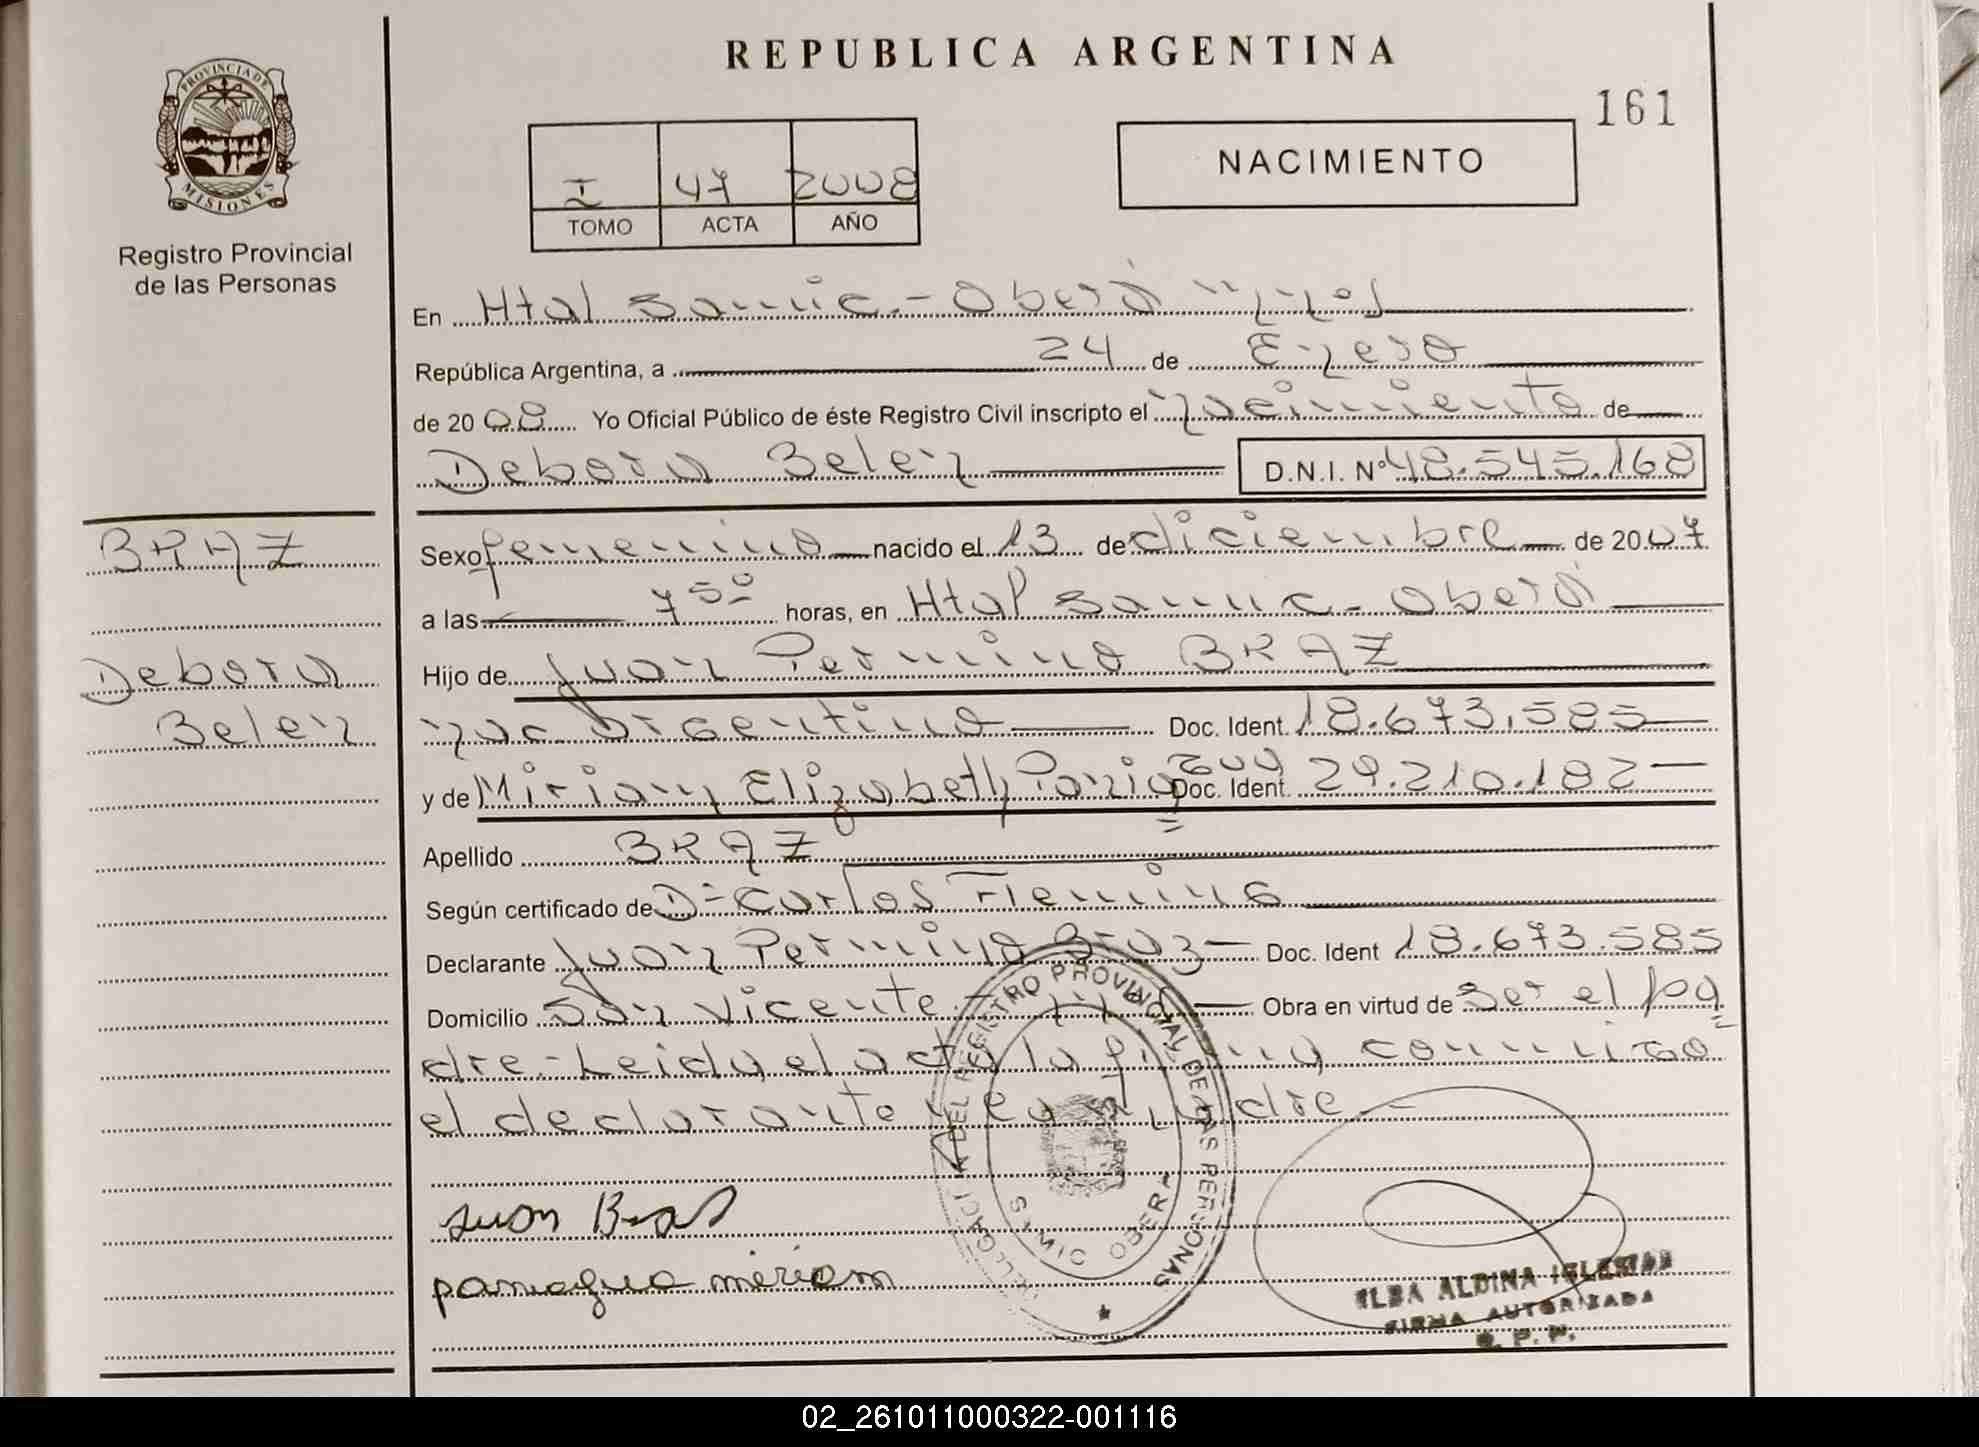 REPUBLICA ARGENTINA
161
PROVINCIA DE
MISIONES
Registro Provincial
de las Personas
I 47 2008
TOMO ACTA AÑO
NACIMIENTO
En Htal Samic - Oberá Mnes
República Argentina, a 24 de Enero
de 20 08 Yo Oficial Público de éste Registro Civil inscripto el nacimiento de
Debora Belen D.N.I. Nº 48.545.168
BRAZ
Debora
Belen
Sexo femenino nacido el 13 de diciembre de 20 07
a las 7 50 horas, en Htal Samic - Oberá
Hijo de Juan Permino BRAZ
nac Argentina Doc. Ident. 18.673.585
y de Miriam Elizabeth Paniagua Doc. Ident. 29.210.182
Apellido BRAZ
Según certificado de Dr Carlos Fleming
Declarante Juan Permino Braz Doc. Ident 18.673.585
Domicilio San Vicente - Obra en virtud de Ser el pa
dre - Leida el acta la firma conmigo
el declarante y la madre -
Juan Braz
paniagua miriam
DEL REGISTRO PROVINCIAL DE LAS PERSONAS
SAMIC OBERA
ELBA ALDINA IGLESIAS
FIRMA AUTORIZADA
R. P. P.
02_261011000322-001116